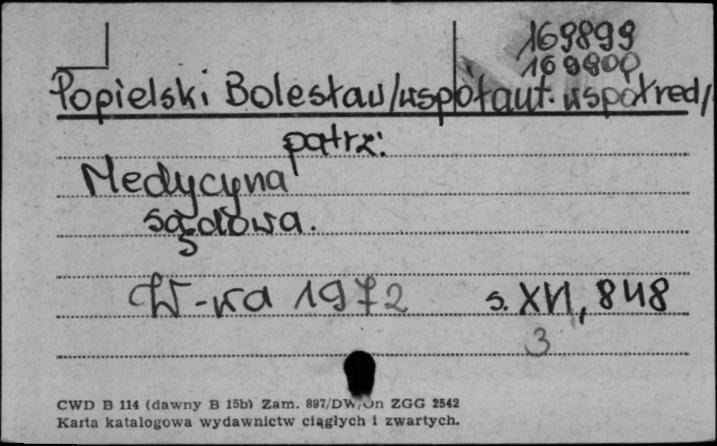 169899
169900
Popielski Bolesław/współaut. współred/
patrz:
Medycyna
sądowa.
W-wa 1972 s. XVI, 848
3
CWD B 114 (dawny B 15b) Zam. 897/DW/Jn ZGG 2542
Karta katalogowa wydawnictw ciągłych i zwartych.